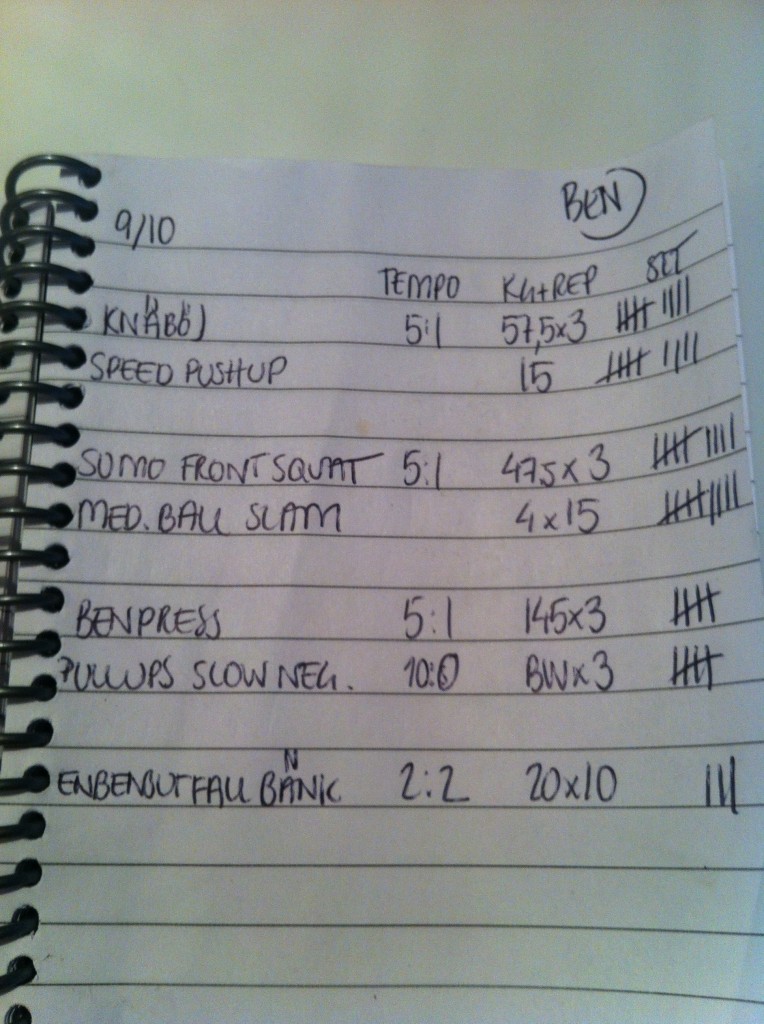 BEN
9/10
TEMPO KG+REP SET
KNÄBÖJ 5:1 57,5x3 |||| ||||
SPEED PUSHUP 15 |||| ||||
SUMO FRONTSQUAT 5:1 47,5x3 |||| ||||
MED. BALL SLAM 4x15 |||| ||||
BENPRESS 5:1 145x3 ||||
PULLUPS SLOW NEG. 10:0 BWx3 ||||
ENBENUTFALL BÄNK 2:2 20x10 |||